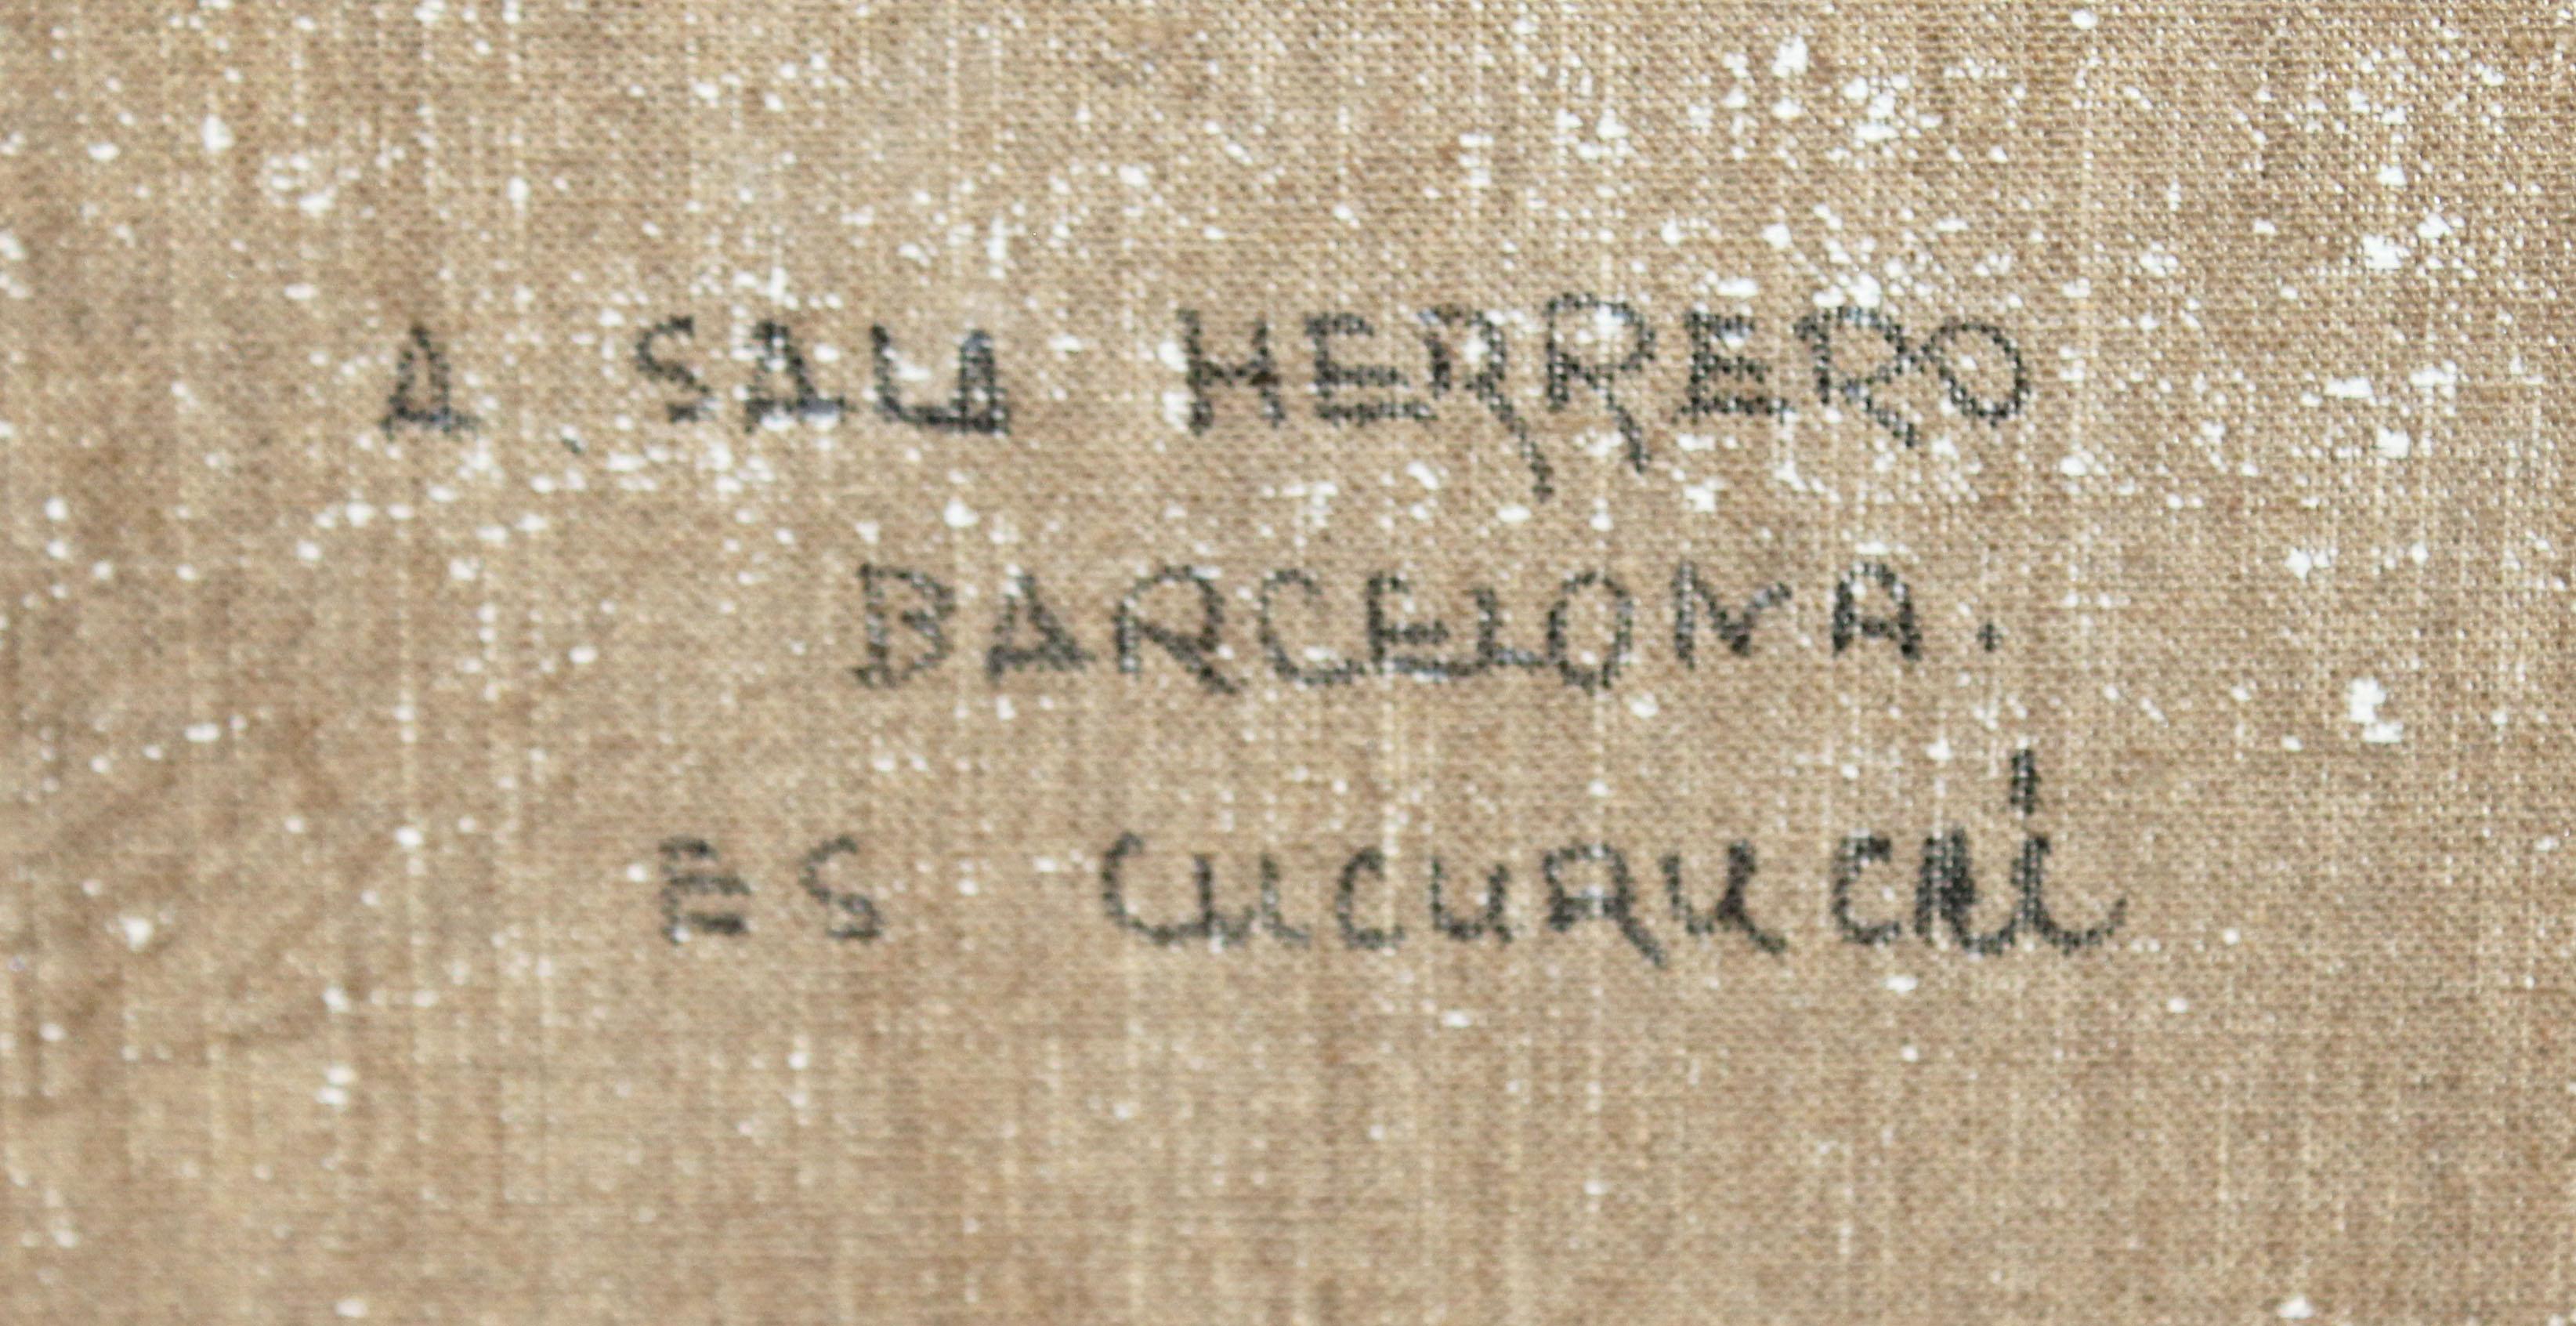 A. SALA HERRERO
BARCELONA.
ES CUCURUCUÍ